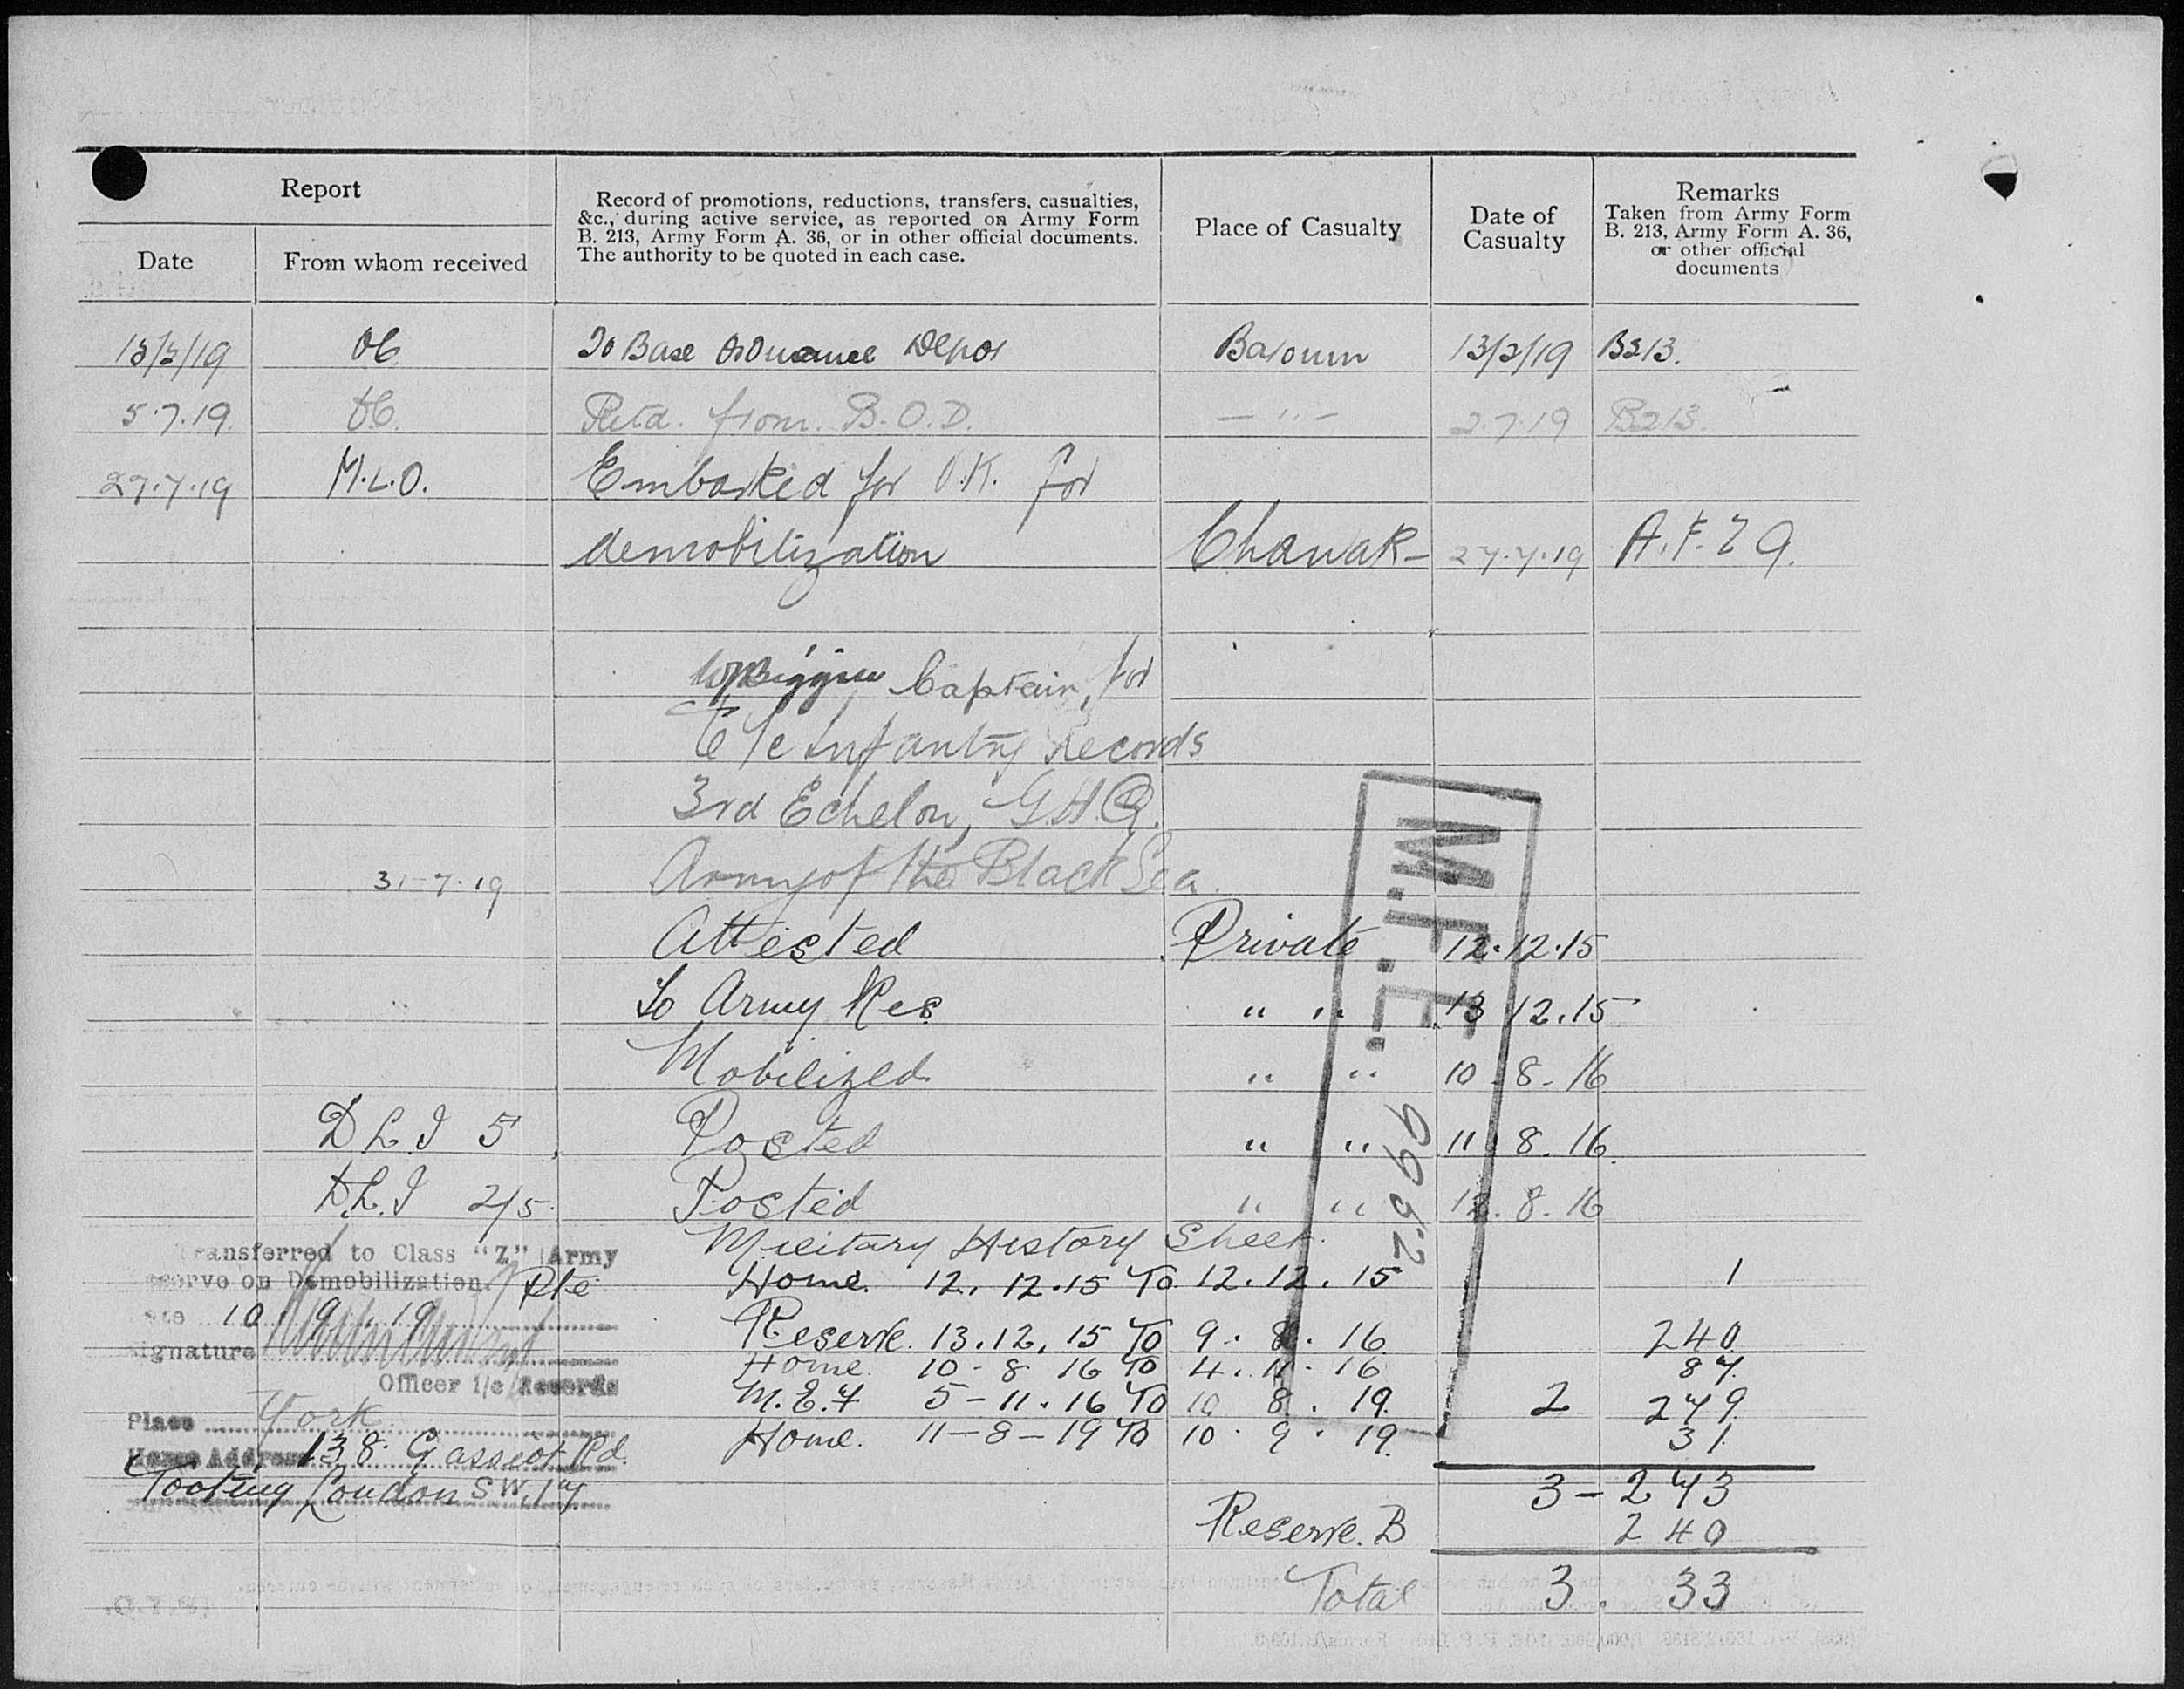 Report
Record of promotions, reductions, transfers, casualties,
&c., during active service, as reported on Army Form
B. 213, Army Form A. 36, or in other official documents.
The authority to be quoted in each case.
Place of Casualty
Date of
Casualty
Remarks
Taken from Army Form
B. 213, Army Form A. 36,
or other official
documents
Date
From whom received
13/2/19 OC To Base Ordnance Depot Batoum 13/2/19 B213.
5.7.19. OC. Retd. from. B.O.D. — " — 2.7.19 B213.
27.7.19 M.L.O. Embarked for U.K. for
demobilization Chanak - 27.7.19 A.F.Z 9.
Captain, for
I/c Infantry Records
3rd Echelon, G.H.Q.
31-7-19 Army of the Black Sea.
Attested Private 12.12.15
To Army Res " " 13.12.15
Mobilized " " 10-8-16
D L.I 5 Posted " " 11.8.16.
D.L.I 2/5. Posted " " 12.8.16
M.F.E.
99652
Military History Sheet.
Transferred to Class "Z" Army
Reserve on Demobilization. Pte
Home. 12.12.15 To 12.12.15 1
10.9.19
Reserve. 13.12.15 To 9.8.16. 240
Signature
Home. 10-8 16 To 4.11.16 87.
Officer i/c Records
M.E.F 5-11.16 To 10 8.19. 2 279.
Place York
Home. 11-8-19 To 10.9.19. 31.
Home Address 138 Gassiot Rd.
Tooting London SW.17
3-243
Reserve. B 240
Total 3. 33